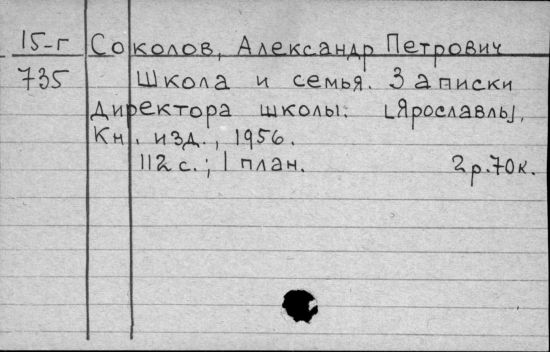 15-г Соколов, Александр Петрович
735 Школа и семья. Записки
директора школы. [Ярославль],
Кн. изд., 1956.
112 с.; 1 план. 2р.70к.